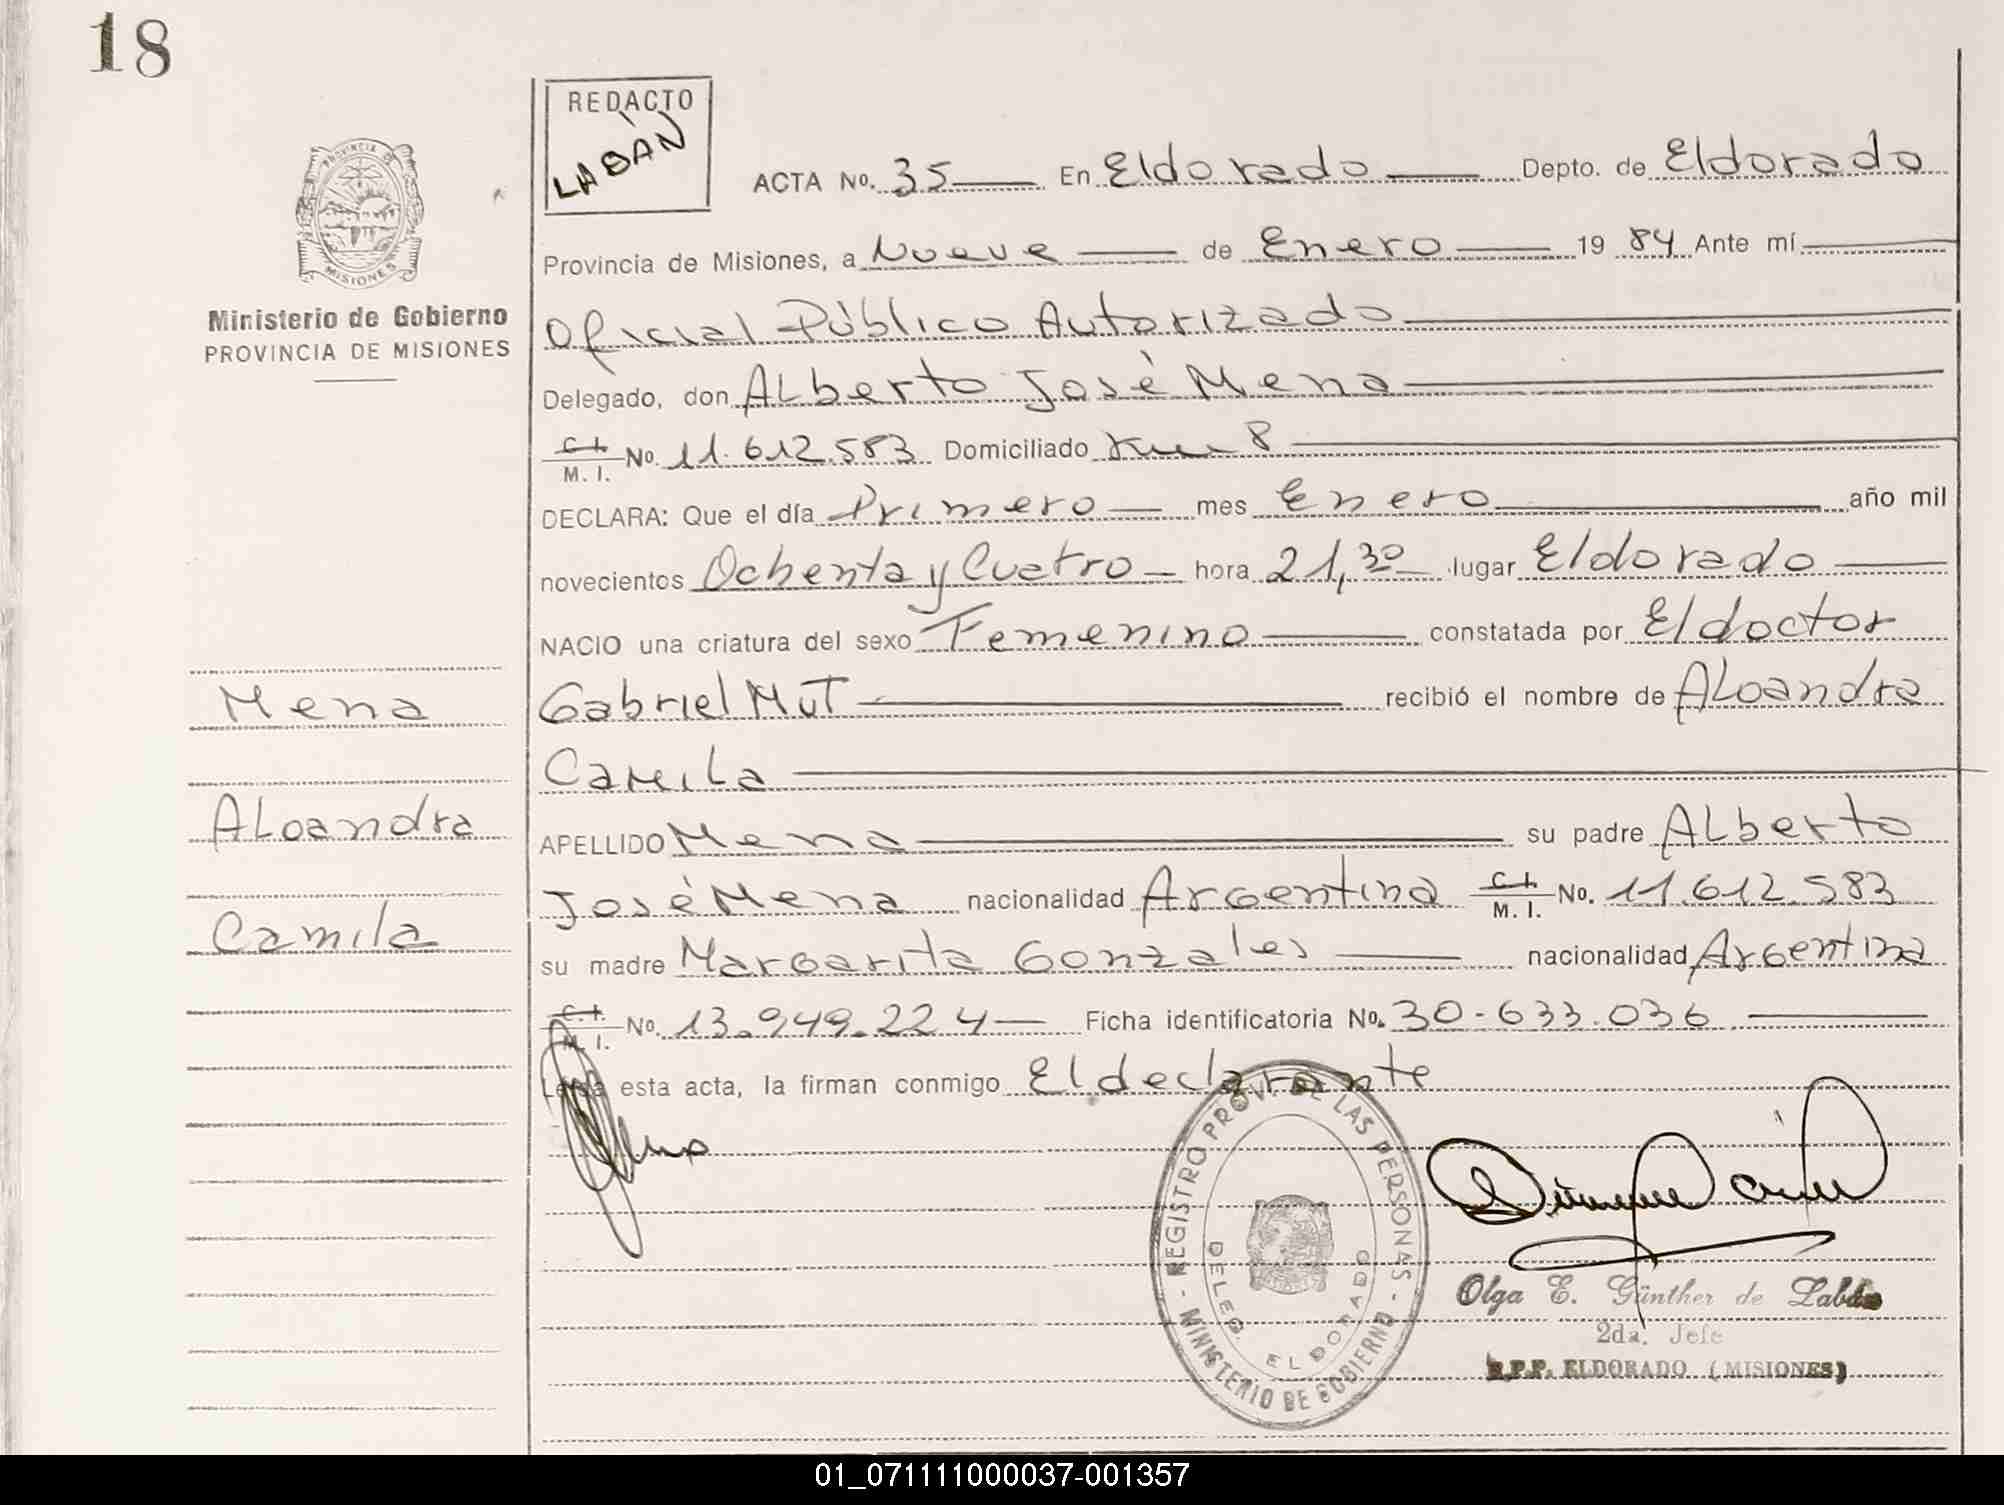 18
REDACTO
LABÁN
PROVINCIA DE
MISIONES
Ministerio de Gobierno
PROVINCIA DE MISIONES
ACTA No. 35 En Eldorado Depto. de Eldorado
Provincia de Misiones, a Nueve de Enero 19 84 Ante mí
Oficial Público Autorizado
Delegado, don Alberto José Mena
C. I.
M. I. No. 11.612.583 Domiciliado Km 8
DECLARA: Que el día Primero mes Enero año mil
novecientos Ochenta y Cuatro hora 21,30 lugar Eldorado
NACIO una criatura del sexo Femenino constatada por El doctor
Gabriel Mut recibió el nombre de ALoandra
Camila
APELLIDO Mena su padre Alberto
José Mena nacionalidad Argentina C. I. M. I. No. 11.612.583
su madre Margarita Gonzales nacionalidad Argentina
C. I.
M. I. No. 13.949.224 Ficha identificatoria No. 30-633.036
Leída esta acta, la firman conmigo El declarante
Mena
ALoandra
Camila
REGISTRO PROV. DE LAS PERSONAS - MINISTERIO DE GOBIERNO -
DELEG. ELDORADO
Olga E. Günther de Labán
2da. Jefe
R.P.P. ELDORADO (MISIONES)
01_071111000037-001357